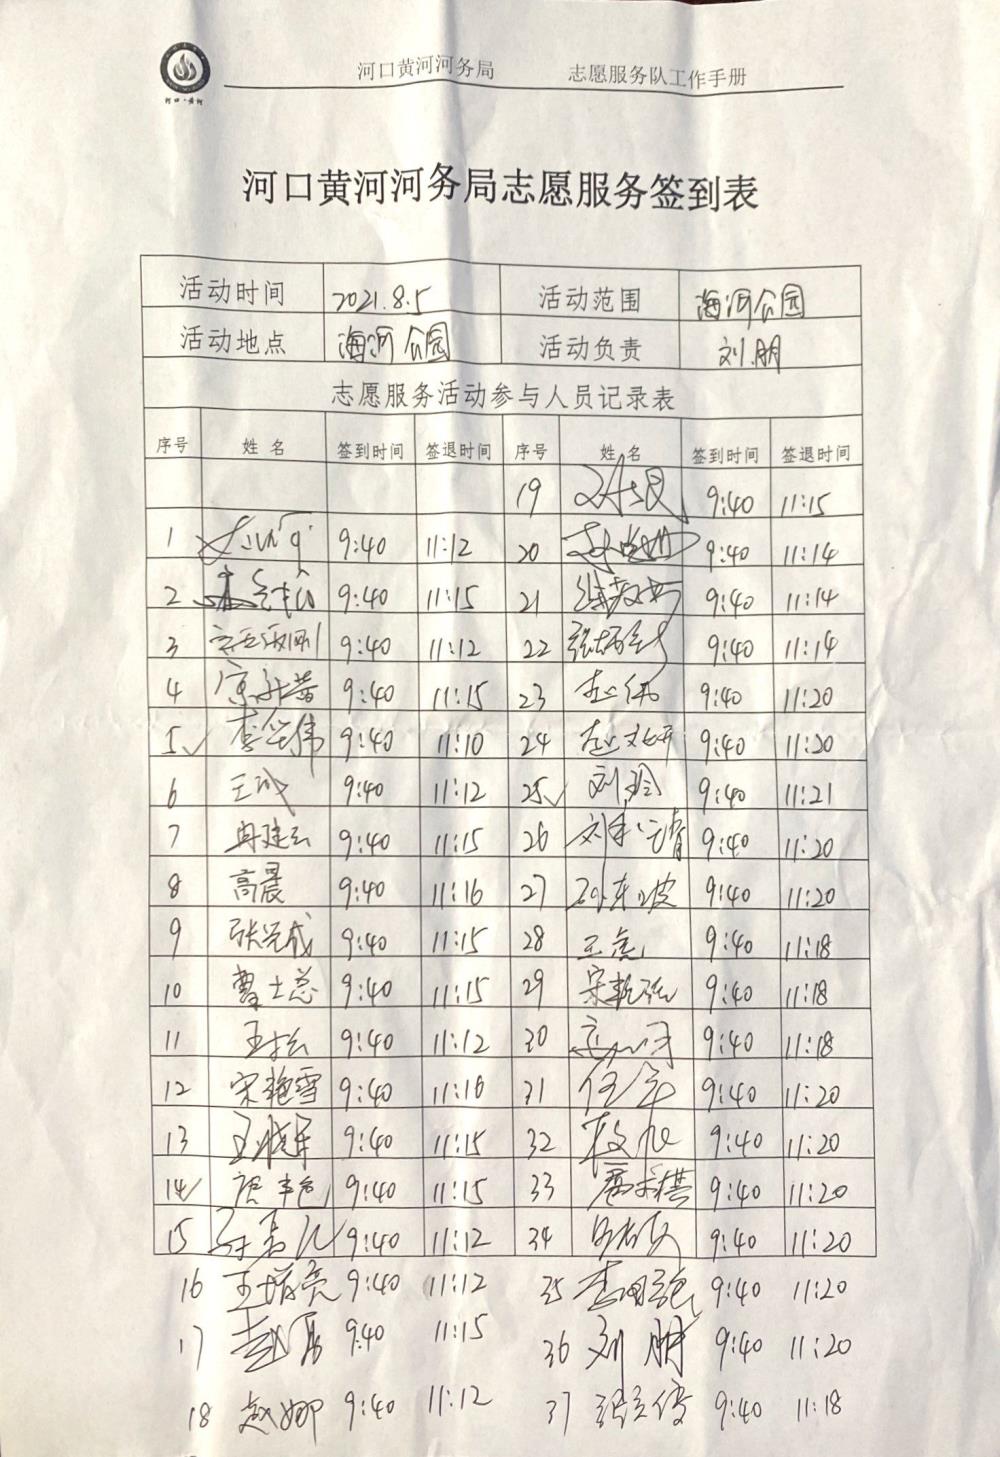 河口·黄河
河口黄河河务局 志愿服务队工作手册
河口黄河河务局志愿服务签到表
活动时间 2021.8.5 活动范围 海河公园
活动地点 海河公园 活动负责 刘朋
志愿服务活动参与人员记录表
序号 姓名 签到时间 签退时间 序号 姓名 签到时间 签退时间
19 9:40 11:15
1 9:40 11:12 20 9:40 11:14
2 9:40 11:15 21 9:40 11:14
3 9:40 11:12 22 9:40 11:14
4 9:40 11:15 23 赵伟 9:40 11:20
5✓ 李华伟 9:40 11:10 24 赵文妍 9:40 11:20
6 王成 9:40 11:12 25✓ 刘玲 9:40 11:21
7 冉建云 9:40 11:15 26 9:40 11:20
8 高晨 9:40 11:16 27 孙东波 9:40 11:20
9 张光成 9:40 11:15 28 9:40 11:18
10 曹士总 9:40 11:15 29 9:40 11:18
11 9:40 11:12 30 9:40 11:18
12 宋艳雪 9:40 11:16 31 任军 9:40 11:20
13 9:40 11:15 32 9:40 11:20
14✓ 9:40 11:15 33 9:40 11:20
15 9:40 11:12 34 9:40 11:20
16 王增亮 9:40 11:12 35 9:40 11:20
17 9:40 11:15 36 刘朋 9:40 11:20
18 赵娜 9:40 11:12 37 9:40 11:18